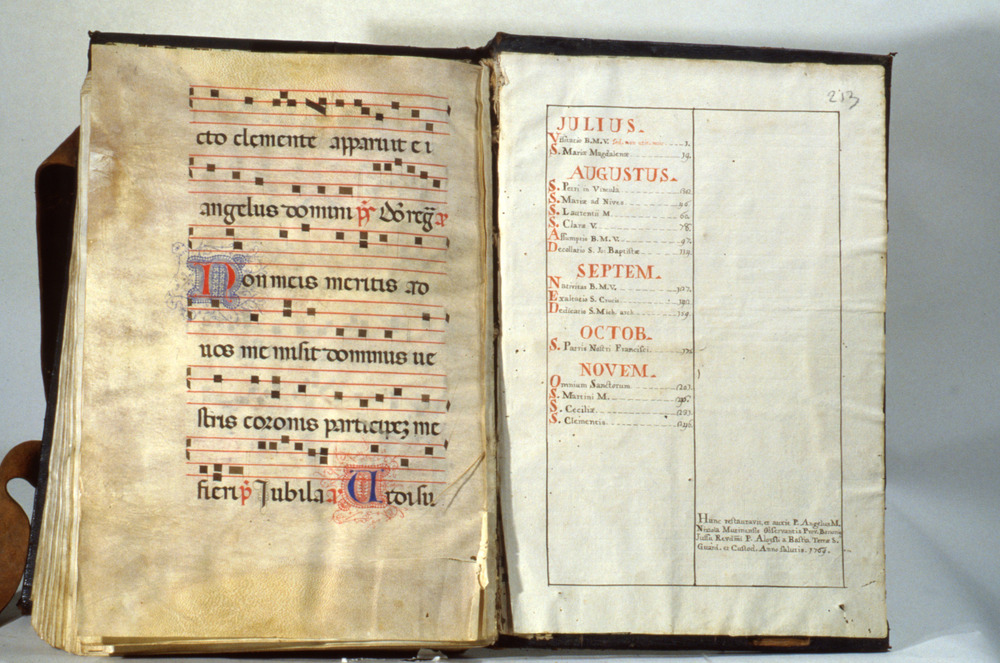 cto clemente apparuit ei
angelus domini p̄s Dn̄s reg̃ a
Non meis meritis ad
uos me misit dominus ue
stris coronis participez me
fieri p̄ Jubila a Audisti
213
JULIUS.
Visitatio B.M.V.
S. Mariæ Magdalenæ 19.
AUGUSTUS.
S. Petri in Vincula
S. Mariæ ad Nives
S. Laurentii M. 60.
S. Claræ V. 78.
Assumptio B.M.V. 97.
Decollatio S. Jo: Baptistæ 119.
SEPTEM.
Nativitas B.M.V.
Exaltatio S. Crucis
Dedicatio S. Mich. arch.
OCTOB.
S. Patris Nostri Francisci.
NOVEM.
Omnium Sanctorum
S. Martini M.
S. Ceciliæ
S. Clementis
Hunc restauravit, et auxit P. Angelus M.
Observantiæ
Jussu P. Aloysii a Bustis
Guard. et Custod. Anno salutis. 1769.